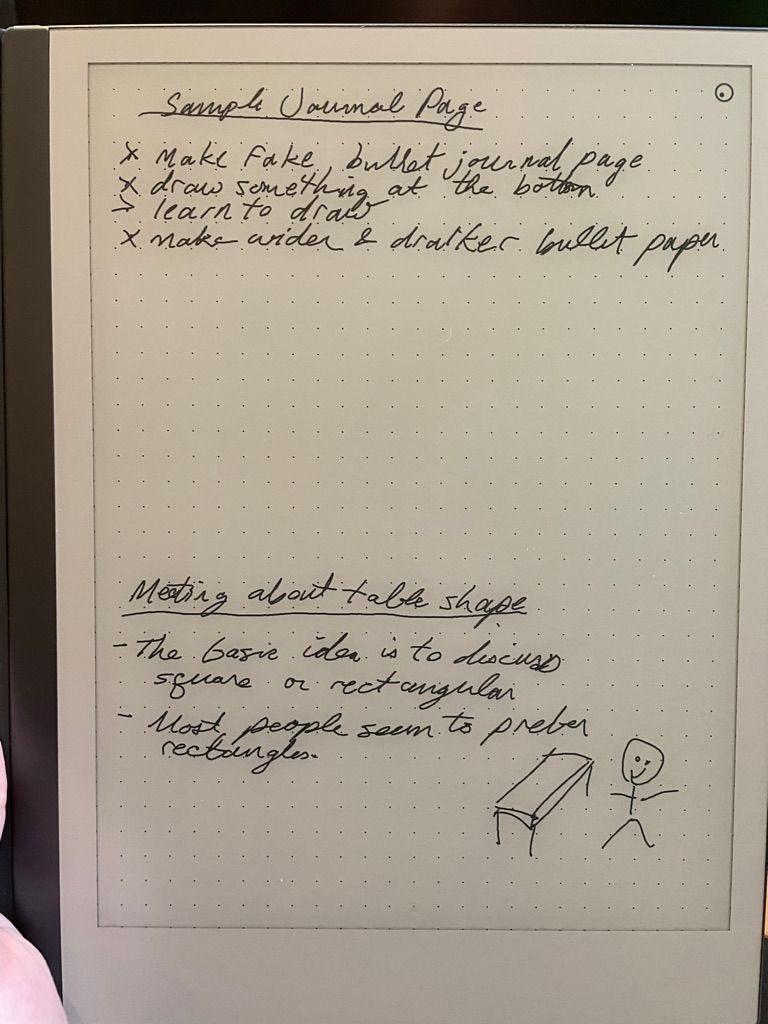 Sample Journal Page
x Make Fake bullet journal page
x draw something at the bottom
> learn to draw
x make wider & drarker bullet paper
Meeting about table shape
- The basic idea is to discuss
square or rectangular
- Most people seem to prefer
rectangles.